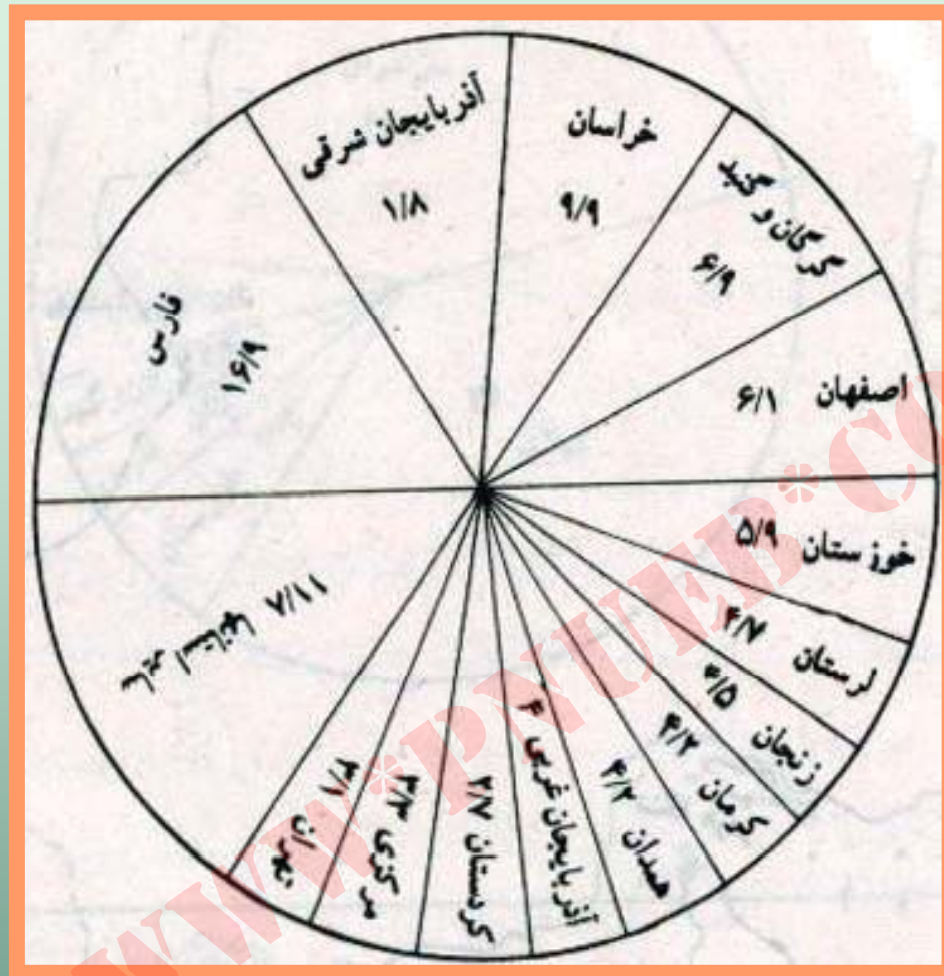 آذربایجان شرقی
۱/۸
خراسان
۹/۹
گرگان و گنبد
۶/۹
اصفهان ۶/۱
خوزستان ۵/۹
لرستان ۴/۷
زنجان ۴/۵
کرمان ۴/۲
همدان ۴/۲
آذربایجان غربی ۴
کردستان ۲/۷
مرکزی ۳/۳
تهران ۳/۱
سایر استانها ۷/۱۱
فارس
۱۶/۹
WWW*PNUEB*CO